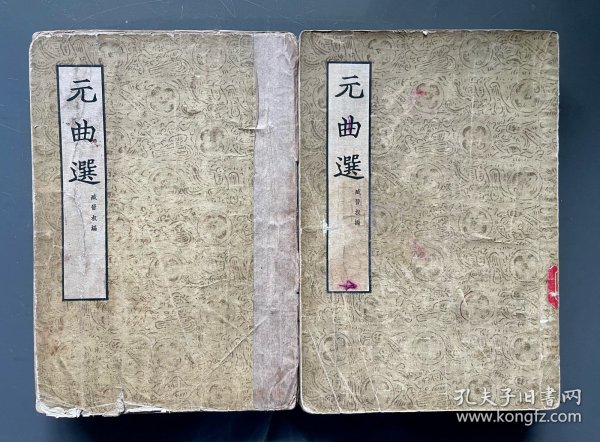 元曲選
臧晉叔編
元曲選
臧晉叔編
孔夫子旧书网
www.kongfz.com